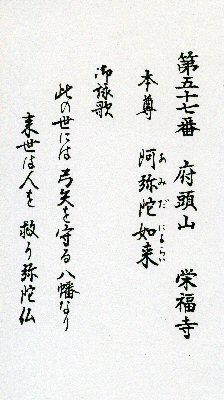 第五十七番 府頭山 栄福寺
本尊 阿弥陀如来
あみだにょらい
御詠歌
此の世には弓矢を守る八幡なり
来世は人を救う弥陀仏